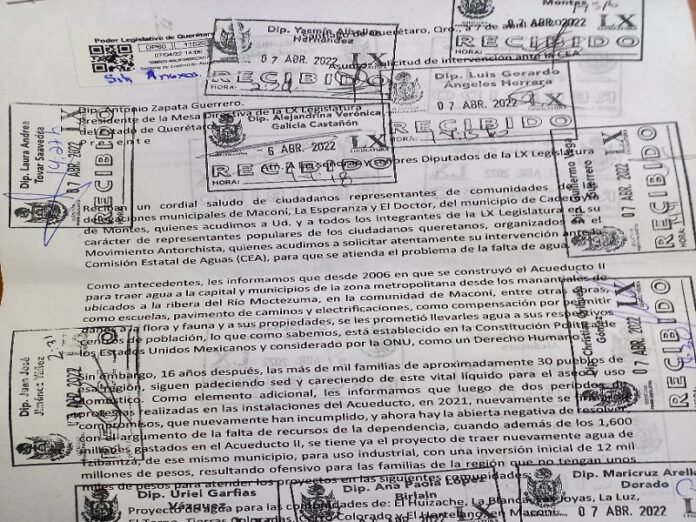 Poder Legislativo de Querétaro
DP80 11520
Sin Anexos.
Dip. Yasmín Albellán
Hernández
RECIBIDO
07 ABR. 2022
HORA:
de Querétaro, Qro., a 7 de abril
Asunto: Solicitud de intervención ante la CEA
07 ABR. 2022
LX
RECIBIDO
HORA:
Dip. Luis Gerardo
Ángeles Herrera
07 ABR. 2022
RECIBIDO
HORA:
Dip. Antonio Zapata Guerrero.
Presidente de la Mesa Directiva de la LX Legislatura
del Estado de Querétaro
Presente
Dip. Alejandrina Verónica
Galicia Castañón
6 ABR. 2022
LX
RECIBIDO
HORA:
Dip. Laura Andrea
Tovar Saavedra
07 ABR. 2022
LX
RECIBIDO
Diputados de la LX Legislatura
Dip. Guillermo Vega
Guerrero
07 ABR. 2022
LX
RECIBIDO
Reciban un cordial saludo de ciudadanos representantes de comunidades de las
delegaciones municipales de Maconí, La Esperanza y El Doctor, del municipio de Cadereyta
de Montes, quienes acudimos a Ud. y a todos los integrantes de la LX Legislatura en su
carácter de representantes populares de los ciudadanos queretanos, organizados en el
Movimiento Antorchista, quienes acudimos a solicitar atentamente su intervención ante la
Comisión Estatal de Aguas (CEA), para que se atienda el problema de la falta de agua.
Como antecedentes, les informamos que desde 2006 en que se construyó el Acueducto II
para traer agua a la capital y municipios de la zona metropolitana desde los manantiales
ubicados a la ribera del Río Moctezuma, en la comunidad de Maconí, entre otras obras
como escuelas, pavimento de caminos y electrificaciones, como compensación por permitir
daños a la flora y fauna y a sus propiedades, se les prometió llevarles agua a sus respectivos
centros de población, lo que como sabemos, está establecido en la Constitución Política de
los Estados Unidos Mexicanos y considerado por la ONU, como un Derecho Humano.
Dip. Christian Orihuela
Gómez
07 ABR. 2022
LX
RECIBIDO
Dip. Juan José
Jiménez Yáñez
ABR. 2022
LX
RECIBIDO
Sin embargo, 16 años después, las más de mil familias de aproximadamente 30 pueblos de
esa región, siguen padeciendo sed y careciendo de este vital líquido para el aseo y uso
doméstico. Como elemento adicional, les informamos que luego de dos períodos de
protestas realizadas en las instalaciones del Acueducto, en 2021, nuevamente se hicieron
compromisos, que nuevamente han incumplido, y ahora hay la abierta negativa de resolver
con el argumento de la falta de recursos de la dependencia, cuando además de los 1,600
millones gastados en el Acueducto II, se tiene ya el proyecto de traer nuevamente agua de
Tzibantzá, de ese mismo municipio, para uso industrial, con una inversión inicial de 12 mil
millones de pesos, resultando ofensivo para las familias de la región que no tengan unos
miles de pesos para atender los proyectos en las siguientes comunidades:
Dip. Uriel Garfias
Vázquez
Dip. Ana Paola
Birlain
Dip. Maricruz Arellano
Dorado
Proyecto de agua para las comunidades de: El Huizache, La Blanca, Las Joyas, La Luz,